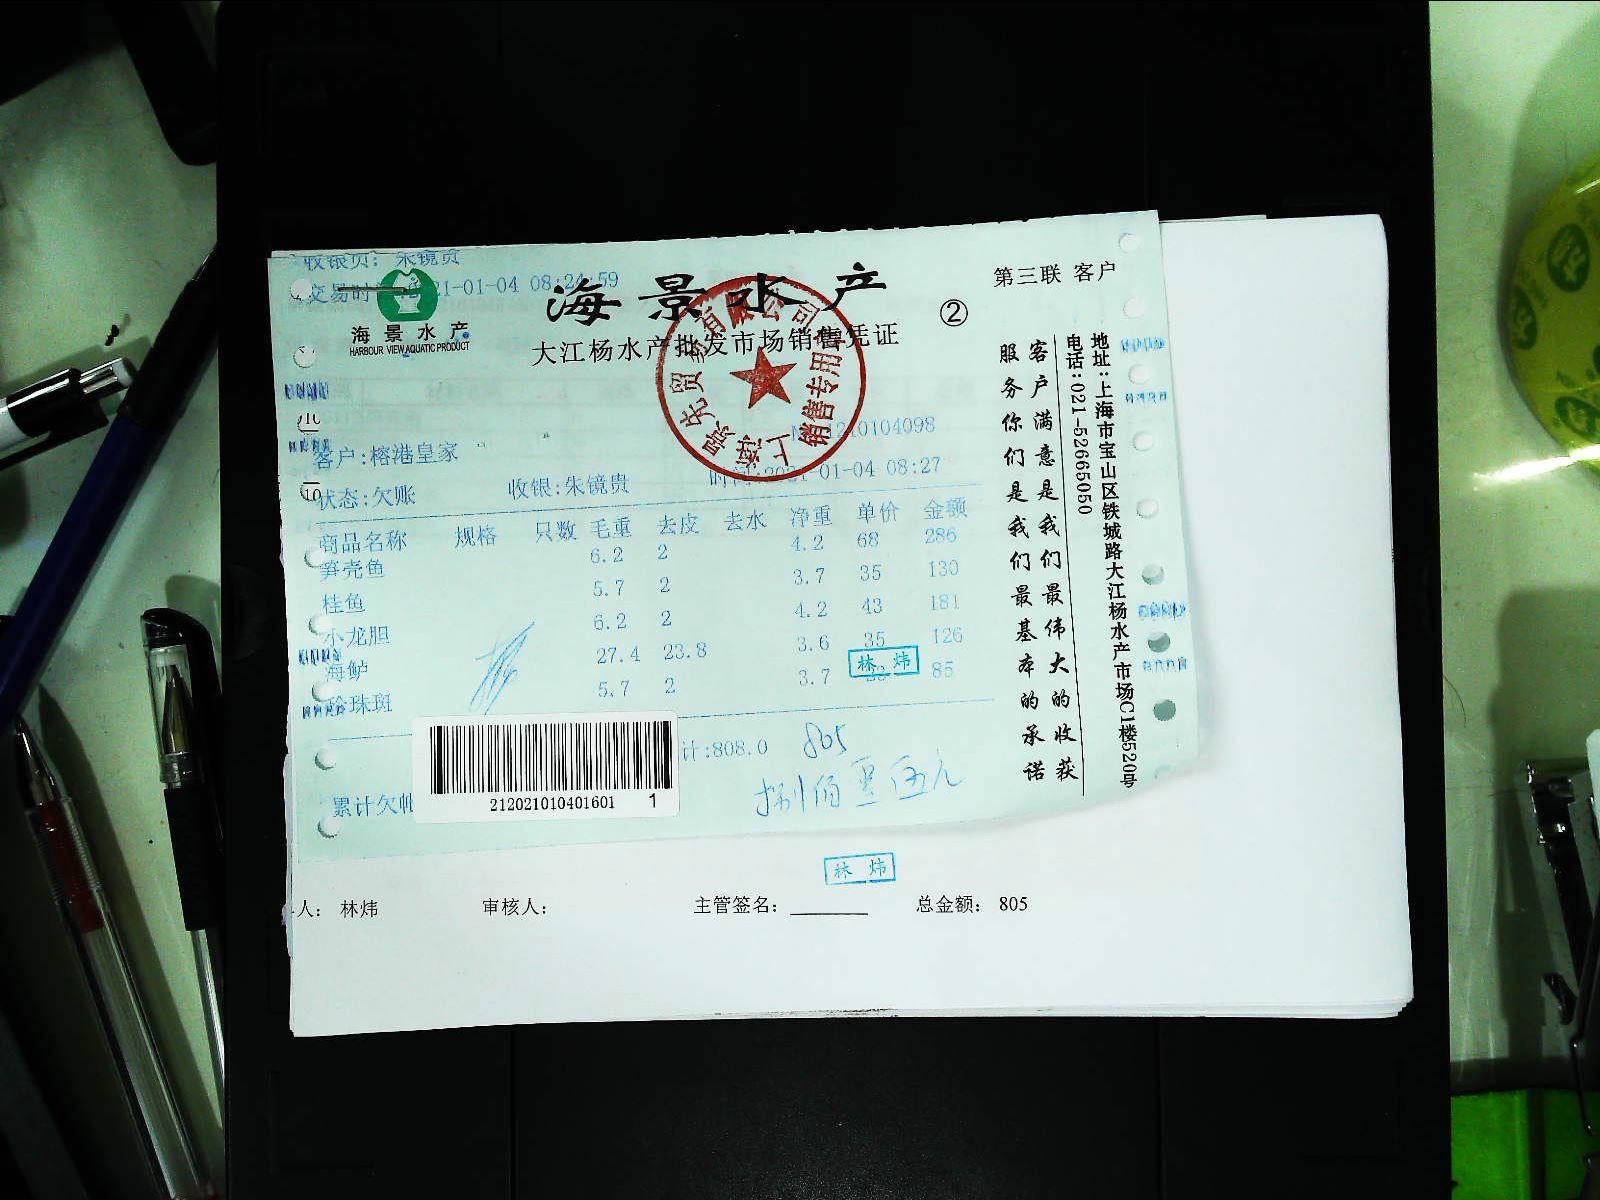 收银员: 朱镜贵
交易时 21-01-04 08:24:59
海景水产
HARBOUR VIEW AQUATIC PRODUCT
海景水产
②
第三联 客户
大江杨水产批发市场销售凭证
销售专用
1210104098
客户:榕港皇家
状态:欠账 收银:朱镜贵 时间:2021-01-04 08:27
商品名称 规格 只数 毛重 去皮 去水 净重 单价 金额
笋壳鱼 6.2 2 4.2 68 286
桂鱼 5.7 2 3.7 35 130
小龙胆 6.2 2 4.2 43 181
海鲈 27.4 23.8 3.6 35 126
珍珠斑 5.7 2 3.7 85
林炜
计:808.0 805
捌佰零伍元
累计欠帐
212021010401601 1
客户满意是我们最伟大的收获
服务你们是我们最基本的承诺
地址:上海市宝山区铁城路大江杨水产市场C1楼520号
电话:021-52665050
林炜
人: 林炜 审核人: 主管签名: 总金额: 805